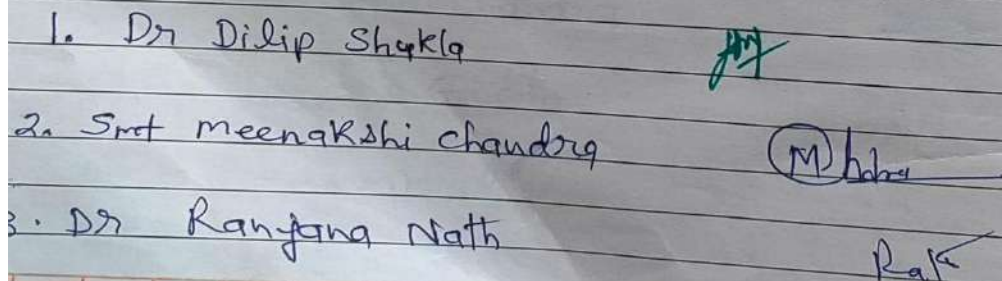 1. Dr Dilip Shukla
2. Smt meenakshi chandra
3. Dr Ranjana Nath